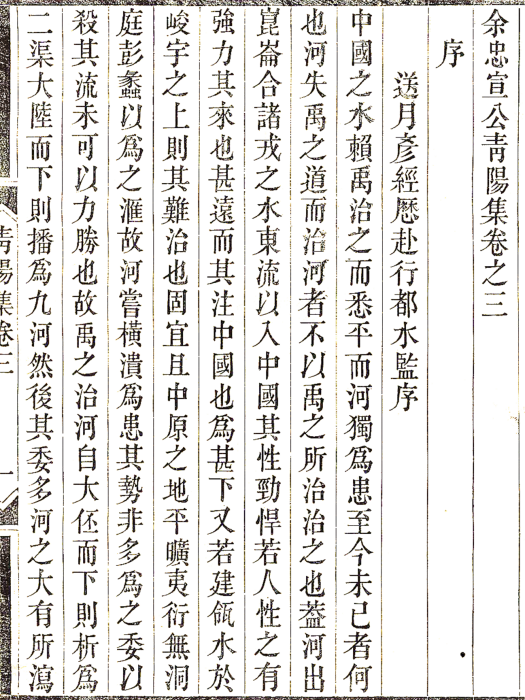 余忠宣公靑陽集卷之三
序
送月彥經歷赴行都水監序
中國之水賴禹治之而悉平而河獨爲患至今未已者何
也河失禹之道而治河者不以禹之所治治之也葢河出
崑崙合諸戎之水東流以入中國其性勁悍若人性之有
強力其來也甚遠而其注中國也爲甚下又若建瓴水於
峻宇之上則其難治也固宜且中原之地平曠夷衍無洞
庭彭蠡以爲之滙故河嘗橫潰爲患其勢非多爲之委以
殺其流未可以力勝也故禹之治河自大伾而下則析爲
二渠大陸而下則播爲九河然後其委多河之大有所瀉
靑陽集卷三
一